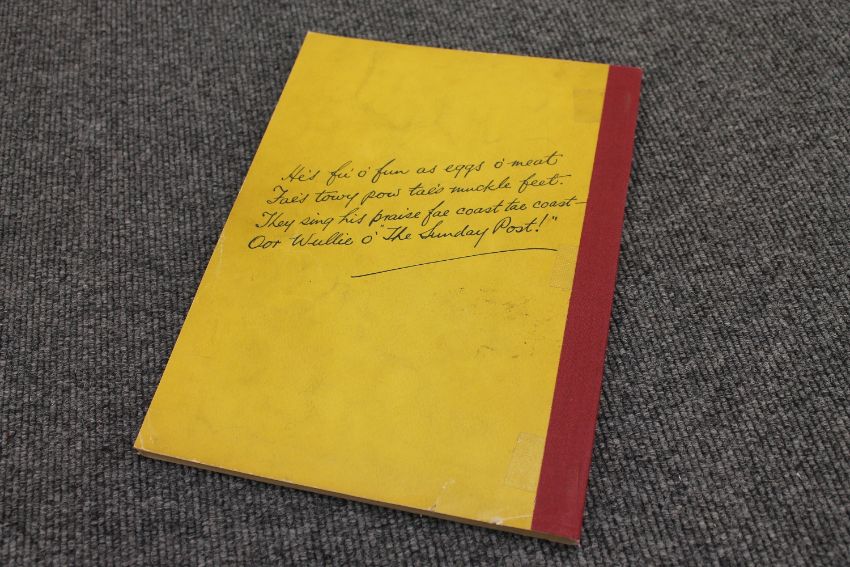 He's fu' o' fun as eggs o' meat
Fae's towy pow tae's muckle feet.
They sing his praise fae coast tae coast—
Oor Wullie o' "The Sunday Post!"